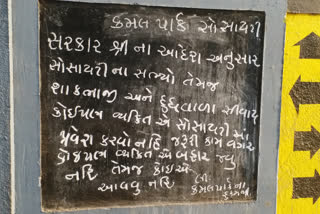 કમલ પાર્ક સોસાયટી
સરકાર શ્રી ના આદેશ અનુસાર
સોસાયટી ના સભ્યો તેમજ
શાકભાજી અને દુધવાળા સીવાય
કોઈપણ વ્યકિત એ સોસાયટી મા
પ્રવેશ કરવો નહિ જરૂરી કામ વગર
કોઈપણ વ્યકિત એ બહાર જવુ
નહિ તેમજ કોઈએ
આવવુ નહિ લી.
કમલપાર્ક ના